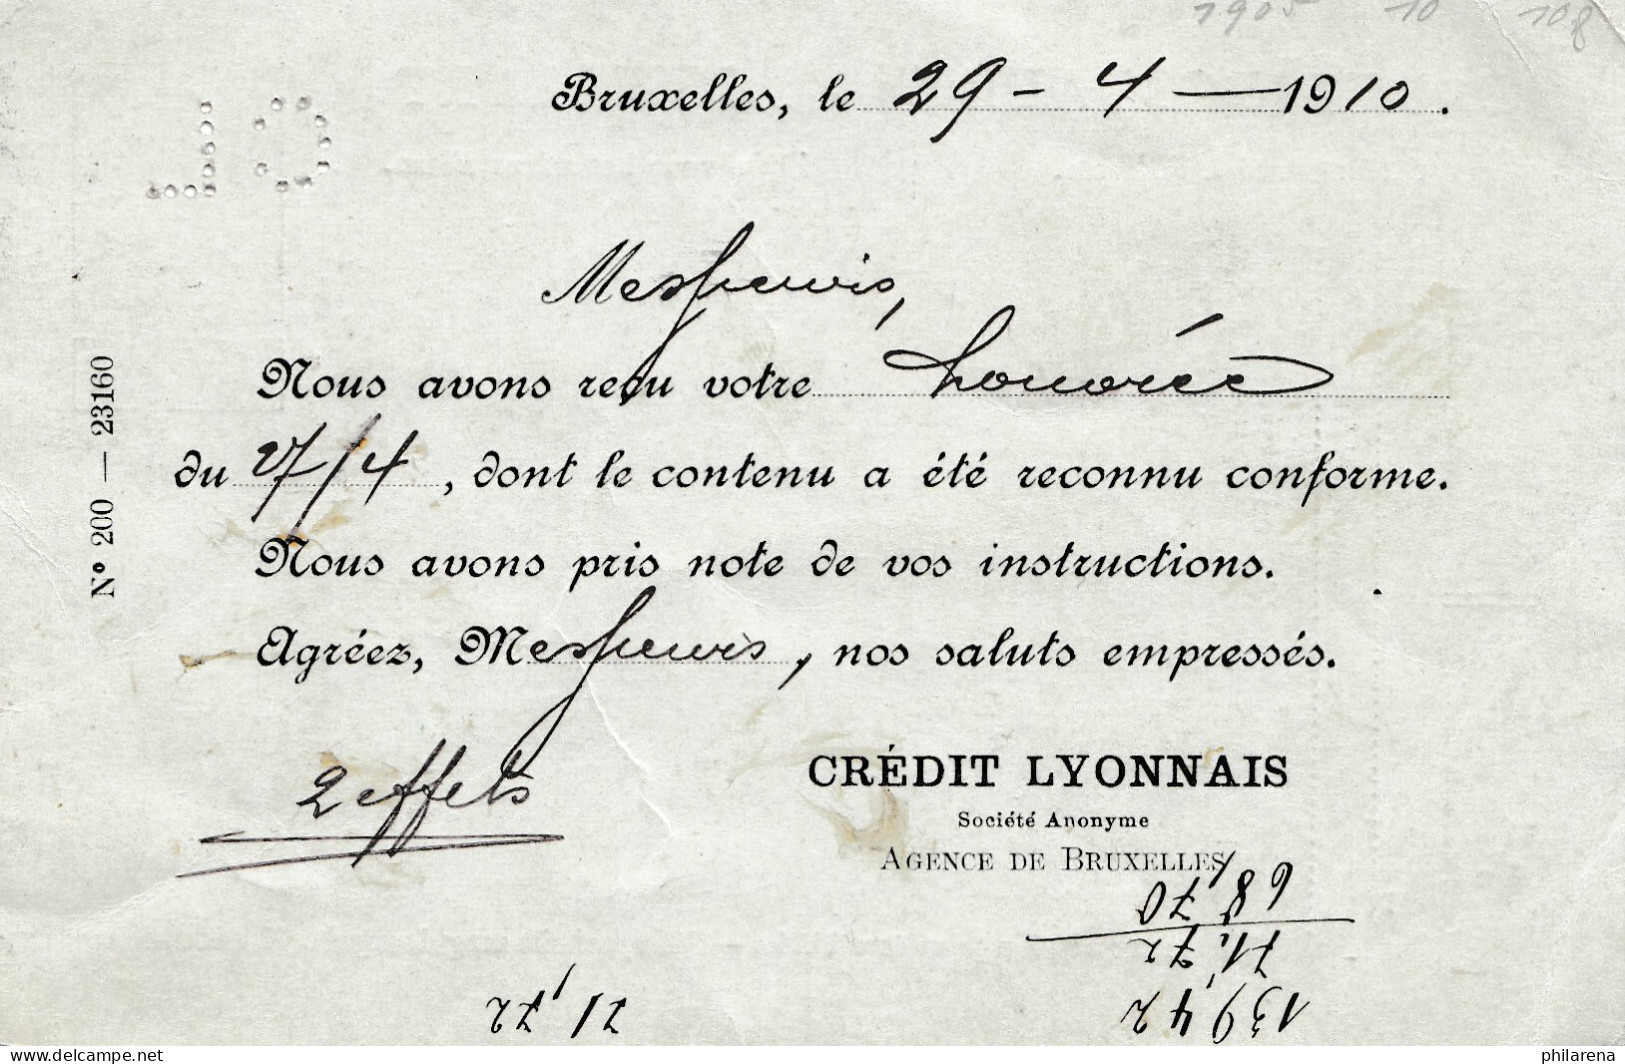 1905 10 108
Bruxelles, le 29 - 4 — 1910.
CL
Messieurs,
Nous avons reçu votre honorée
du 27/4, dont le contenu a été reconnu conforme.
Nous avons pris note de vos instructions.
Agréez, Messieurs, nos saluts empressés.
2 effets
CRÉDIT LYONNAIS
Société Anonyme
AGENCE DE BRUXELLES
Nº 200 — 23160
139,42
71,72
68,70
71,72
philarena